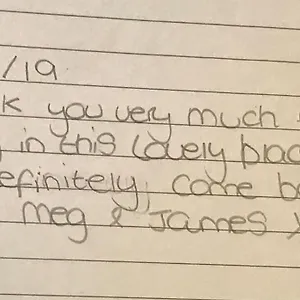 /19
k you very much
in this lovely plac
efinitely, come b
Meg & James x